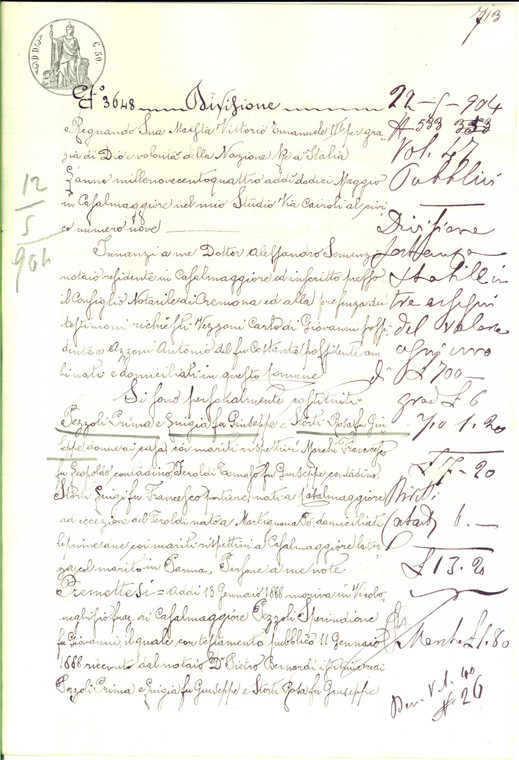 713
C. 50
N° 3648 Divisione
Regnando Sua Maestà Vittorio Emanuele III per gra
zia di Dio e volontà della Nazione Re d'Italia
L'anno millenovecentoquattro addì dodici Maggio
in Casalmaggiore nel mio Studio Via Cairoli al civi
co numero nove
Innanzi a me Dottor Alessandro
notaio residente in Casalmaggiore ed inscritto presso
il Consiglio Notarile di Cremona ed alla presenza dei
testimoni richiesti Vezzoni Carlo di Giovanni possi
dente e Azzoni Antonio del fu Costante possidente am
bi nati e domiciliati in questo comune
Si sono personalmente costituiti
Pezzoli Prima e Luigia fu Giuseppe e Storti Rosa fu Giu
seppe donne di casa coi mariti rispettivi Marchi Francesco
fu Leopoldo contadino, Feroldi fu Giuseppe contadino
Storti Luigi fu Francesco portiere nati a Casalmaggiore
ad eccezione del Feroldi nato a Martignana Po, domiciliati
le prime due coi mariti rispettivi a Casalmaggiore la ter
za col marito in Parma. Persone a me note
Premettesi = Addì 13 Gennaio 1888 moriva in Vicobo
neghisio fraz. di Casalmaggiore Pezzoli Sperindione
fu Giovanni, il quale con testamento pubblico 11 Gennaio
1888 ricevuto dal notaio Dr Pietro Bernardi
Pezzoli Prima e Luigia fu Giuseppe e Storti Rosa fu Giuseppe
12
5
904
22-5-904
N 533
Vol. 47
Pubblici
Divisione
Stabili in
tre assegni
del valore
ognuno
di £ 700-
grad £ 6
1.20
£ 7-20
Diritti
6.-
£ 13.20
Marche £ 1.80
Vol. 40
N. 26